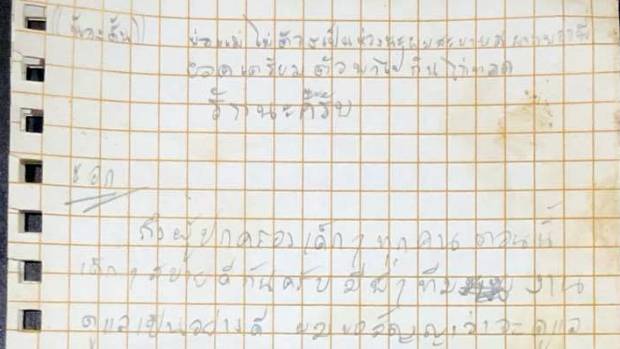 พ่อแม่ไม่ต้องเป็นห่วงนะผมสบายดี
ยอดเตรียมตัวพาไปกินไก่ทอด
นะครับ
ช เอก
ถึงผู้ปกครองเด็กๆ ทุกคน ตอนนี้
เด็กๆ สบายดีกันครับ มีพี่ๆ ทีม งาน
ดูแลเป็นอย่างดี ผมขอสัญญาว่าจะดูแล